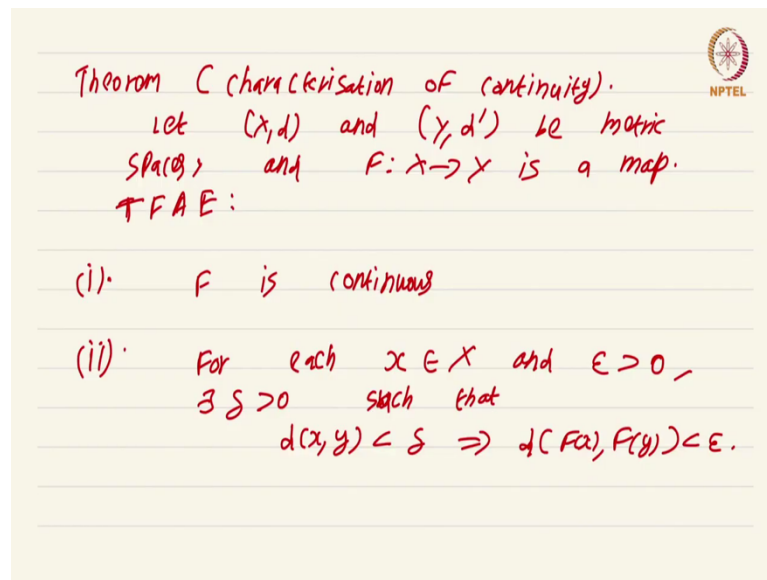 Theorom (characterisation of continuity).
NPTEL
Let (X,d) and (Y,d') be metric
spaces and F: X→Y is a map.
TFAE:
(i). F is continuous
(ii). For each x ∈ X and ε>0,
∃ δ>0 such that
d(x,y) < δ ⇒ d(F(x), F(y)) < ε.